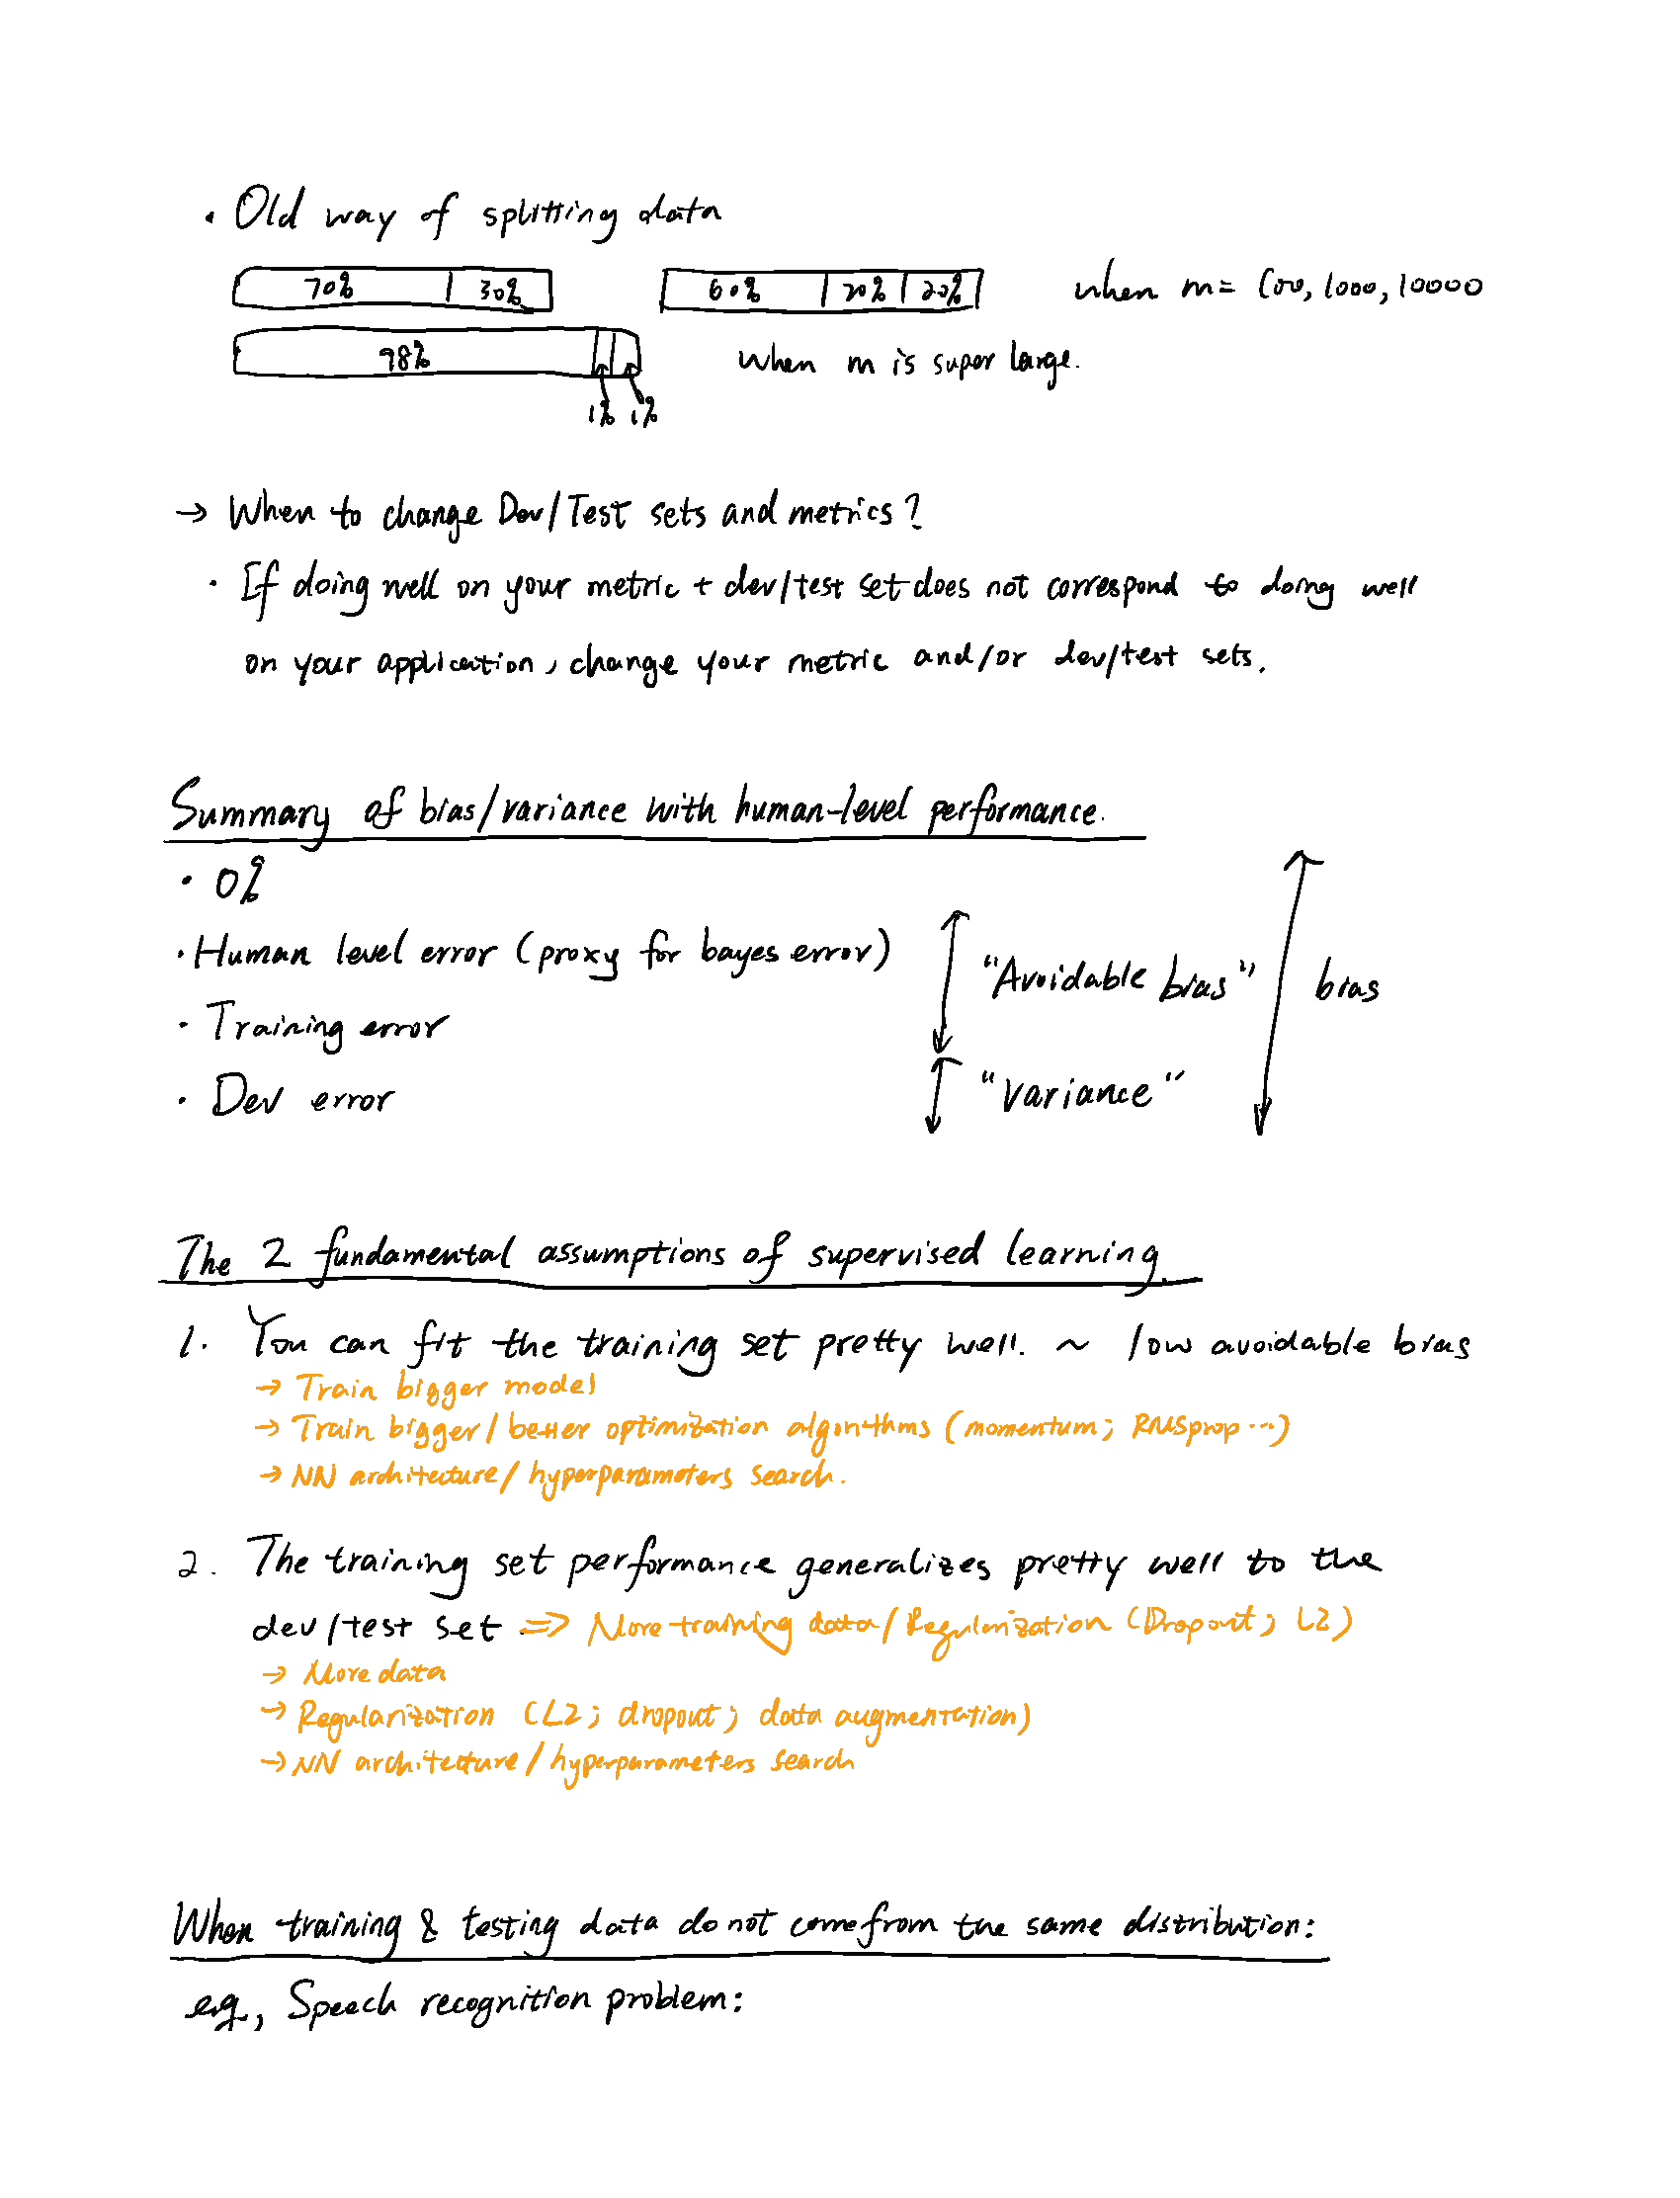 · Old way of splitting data
70% 30% 60% 20% 20% when m = 100, 1000, 10000
98% when m is super large.
1% 1%
→ When to change Dev/Test sets and metrics?
· If doing well on your metric + dev/test set does not correspond to doing well
on your application, change your metric and/or dev/test sets.
Summary of bias/variance with human-level performance.
· 0%
· Human level error (proxy for bayes error)
"Avoidable bias" bias
· Training error
· Dev error "Variance"
The 2 fundamental assumptions of supervised learning.
1. You can fit the training set pretty well. ~ low avoidable bias
→ Train bigger model
→ Train bigger/better optimization algorithms (momentum; RMSprop ...)
→ NN architecture/hyperparameters search.
2. The training set performance generalizes pretty well to the
dev/test set => More training data/Regularization (Dropout; L2)
→ More data
→ Regularization (L2; dropout; data augmentation)
→ NN architecture/hyperparameters search
When training & testing data do not come from the same distribution:
e.g., Speech recognition problem: